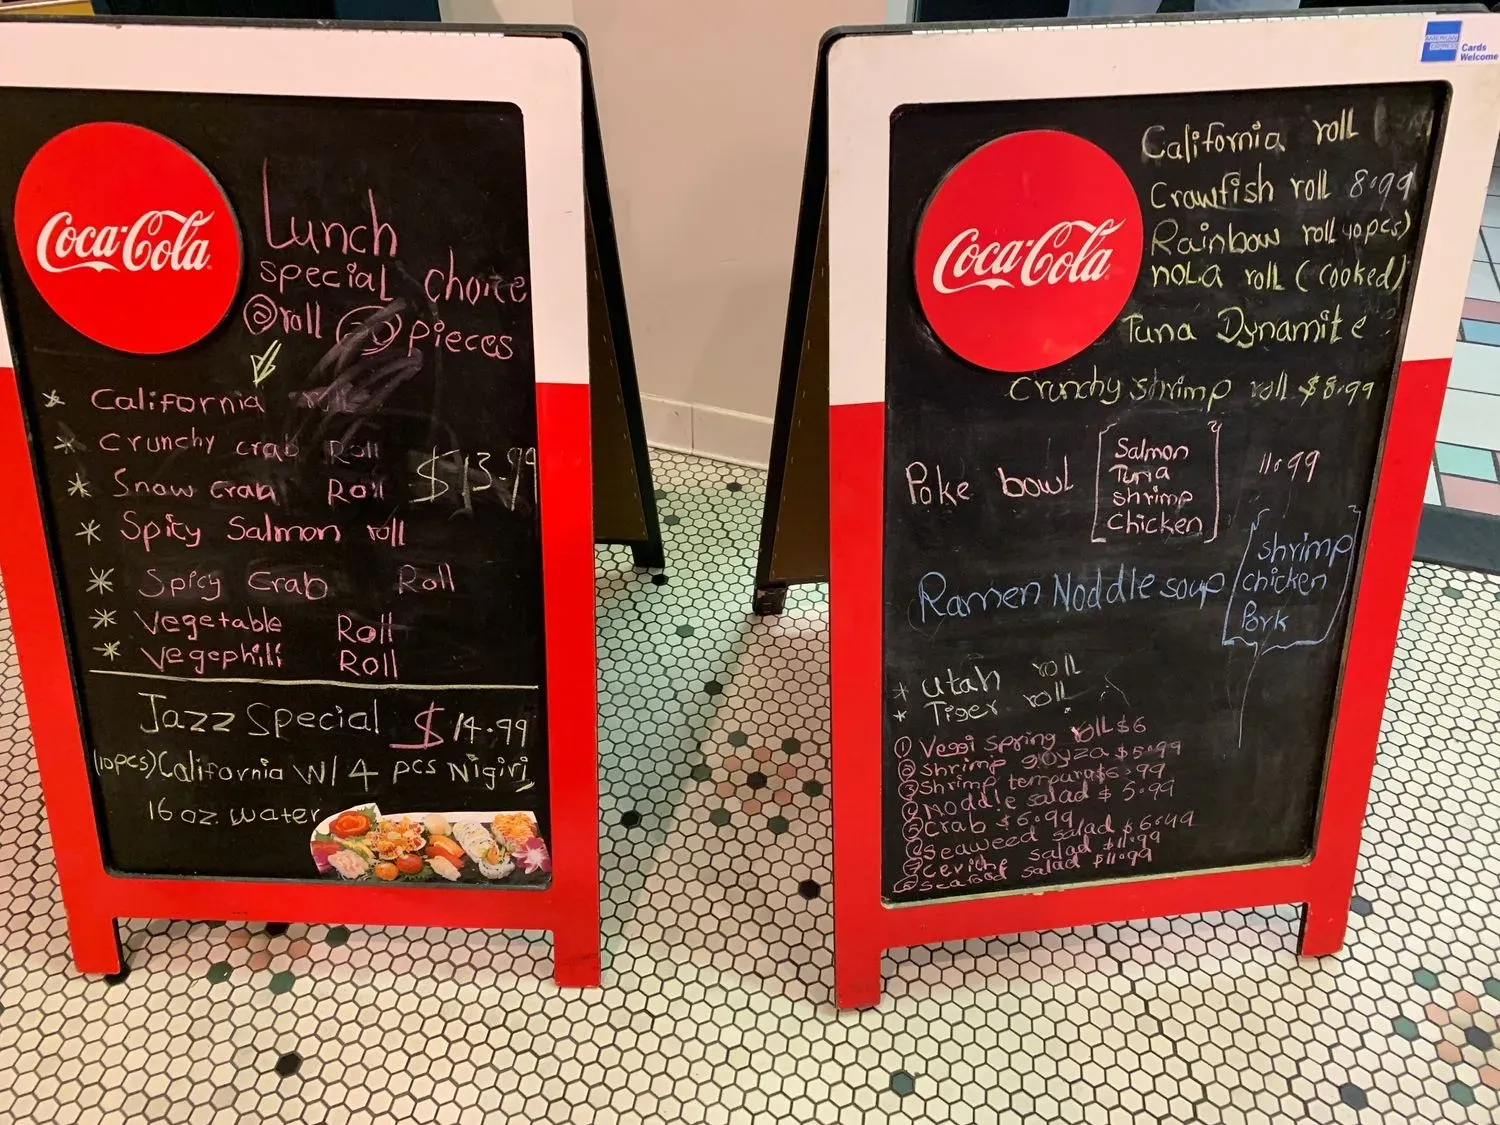 Coca-Cola
Lunch
special choice
② roll 20 pieces
* California roll
* Crunchy crab Roll
* Snow crab Roll
$13.99
* Spicy Salmon roll
* Spicy Crab Roll
* Vegetable Roll
* Vegephili Roll
Jazz Special $14.99
(10pcs) California w/ 4 pcs Nigiri
16 oz. water
AMERICAN EXPRESS
Cards Welcome
Coca-Cola
California roll
Crawfish roll 8.99
Rainbow roll (10pcs)
NOLA roll (cooked)
Tuna Dynamite
Crunchy shrimp roll $8.99
Poke bowl
Salmon
Tuna
shrimp
chicken
11.99
Ramen Noddle soup
shrimp
chicken
Pork
* Utah roll
* Tiger roll
① Veggi spring roll $6
② shrimp goyza $5.99
③ shrimp tempura $6.99
④ Noddle salad $5.99
⑤ crab $6.99
⑥ seaweed salad $6.49
⑦ ceviche salad $11.99
⑧ seafood salad $11.99